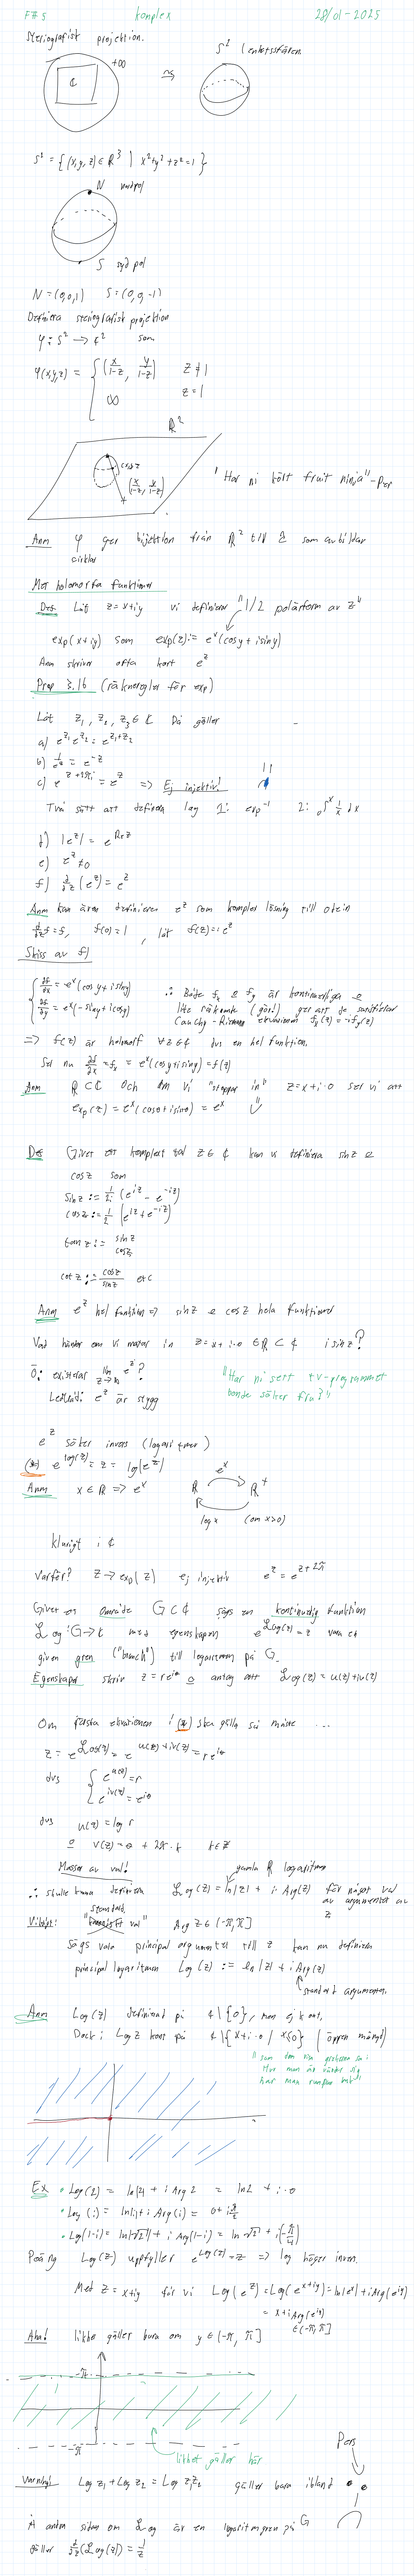 FÖ 5 komplex 28/01-2025
Steriografisk projektion.
S² (enhetssfären
+∞
ℂ
≃
S² = {(x,y,z) ∈ ℝ³ | x²+y²+z²=1}
N nordpol
S sydpol
N = (0,0,1) S = (0,0,-1)
Definiera steriografisk projektion
φ: S² → ℂ² som
φ(x,y,z) = { (x/(1-z), y/(1-z)) z ≠ 1
∞ z = 1
ℝ²
(x,y,z
(x/(1-z), y/(1-z))
"Har ni kört fruit ninja" - Per
Anm φ ger bijektion från ℝ² till som avbildar
cirklar
Mer holomorfa funktioner
Def Låt z = x+iy vi definierar "1/2 polärform av z"
exp(x+iy) som exp(z) := e^x (cos y + i sin y)
Anm skriver ofta kort e^z
Prop 3.16 (räkneregler för exp)
Låt z₁, z₂, z₃ ∈ ℂ Då gäller
a) e^z₁ e^z₂ = e^(z₁+z₂)
b) 1/e^z = e^-z
c) e^(z+2πi) = e^z => Ej injektiv!
Två sätt att definiera log 1: exp⁻¹ 2: ₀∫^x 1/x dx
d) |e^z| = e^(Re z)
e) e^z ≠ 0
f) d/dz (e^z) = e^z
Anm kan även definiera e^z som komplex lösning till ode:n
d/dz f = f, f(0) = 1, låt f(z) = e^z
Skiss av f)
{ ∂f/∂x = e^x (cos y + i sin y)
∂f/∂y = e^x (-sin y + i cos y)
∴ Både f_x & f_y är kontinuerliga &
lite räknande (gör!) ger att de satisfierar
Cauchy-Riemann ekvationen f_x(z) = -i f_y(z)
=> f(z) är holomorf ∀z ∈ ℂ dvs en hel funktion.
Ser nu ∂f/∂x = f_x = e^x (cos y + i sin y) = f(z)
Anm ℝ ⊂ ℂ och om vi "stoppar in" z = x + i·0 ser vi att
exp(z) = e^x (cos 0 + i sin 0) = e^x
Def Givet ett komplext tal z ∈ ℂ kan vi definiera sin z &
cos z som
sin z := 1/2i (e^iz - e^-iz)
cos z := 1/2 (e^iz + e^-iz)
tan z := sin z / cos z
cot z := cos z / sin z etc
Anm e^z hel funktion => sin z & cos z hela funktioner
Vad händer om vi matar in z = x + i·0 ∈ ℝ ⊂ ℂ i sin z?
Ö: existerar lim z→∞ e^z?
Ledtråd: e^z är stygg
"Har ni sett tv-programmet
bonde söker fru?"
e^z söker invers (logaritmer)
(*) e^log(z) = z = log(e^z)
Anm x ∈ ℝ => e^x
ℝ e^x ℝ⁺
log x (om x>0)
klurigt i ℂ
Varför? z → exp(z) ej injektiv e^z = e^(z+2π
Givet ett område G ⊂ ℂ sägs en kontinuerlig funktion
Log: G → ℂ med egenskapen e^Log(z) = z vara en
given gren ("branch") till logaritmen på G.
Egenskaper skriv z = re^iθ & antag att Log(z) = u(z) + iv(z)
Om första ekvationen i (*) ska gälla så måste ...
z = e^Log(z) = e^(u(z)+iv(z)) = re^iθ
dvs { e^u(z) = r
e^iv(z) = e^iθ
dvs u(z) = log r
& v(z) = θ + 2π·k k ∈ ℤ
Massor av val! gamla ℝ logaritmen
∴ skulle kunna definiera Log(z) = ln|z| + i·Arg(z) för något val
av argumentet av
z
standard
Viktigt: val" Arg z ∈ (-π, π]
Sägs vara principal argumentet till z kan nu definiera
principal logaritmen Log(z) := ln|z| + i Arg(z)
standard argumenten.
Anm Log(z) definierad på ℂ\{0}, men ej kont.
Dock: Log z kont på ℂ\{x+i·0 | x≤0} (öppen mängd)
"som den visa grekossen sa:
Hur man än vänder sig
har man rumpan bak"
Ex • Log(2) = ln|2| + i Arg 2 = ln 2 + i·0
• Log(i) = ln|i| + i Arg(i) = 0 + i π/2
• Log(1-i) = ln|√2| + i Arg(1-i) = ln √2 + i(-π/4)
Poäng Log(z) uppfyller e^Log(z) = z => log höger invers.
Med z = x+iy får vi Log(e^z) = Log(e^(x+iy)) = ln|e^x| + i Arg(e^iy)
= x + i Arg(e^iy)
∈(-π,π]
Aha! likhet gäller bara om y ∈ (-π, π]
-π
-π
likhet gäller här
Pers
Varning! Log z₁ + Log z₂ = Log z₁z₂ gäller bara ibland
Å andra sidan om Log är en logaritmgren på G
gäller d/dz (Log(z)) = 1/z